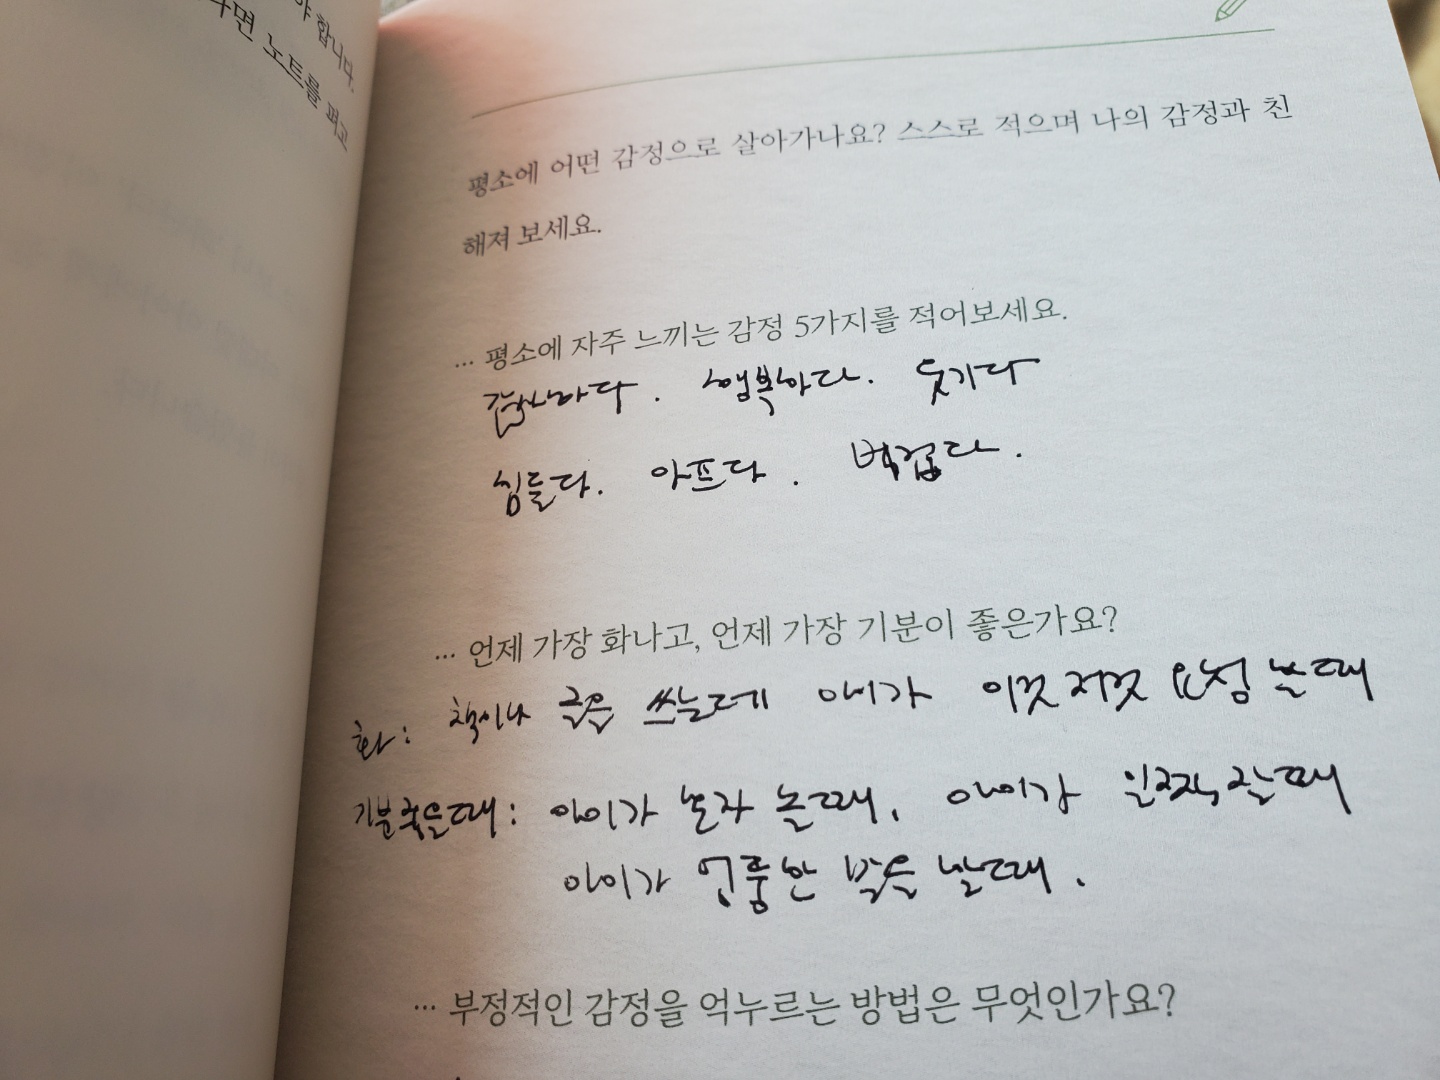 야 합니다.
다면 노트를 펴고
평소에 어떤 감정으로 살아가나요? 스스로 적으며 나의 감정과 친
해져 보세요.
… 평소에 자주 느끼는 감정 5가지를 적어보세요.
행복하다. 웃기다
힘들다. 아프다. 버겁다.
… 언제 가장 화나고, 언제 가장 기분이 좋은가요?
화: 책이나 글을 쓰는데 애가 이것저것 요청 할때
기분좋을때: 아이가 혼자 놀때, 아이가 일찍 잘때
아이가 엉뚱한 말을 할때.
… 부정적인 감정을 억누르는 방법은 무엇인가요?